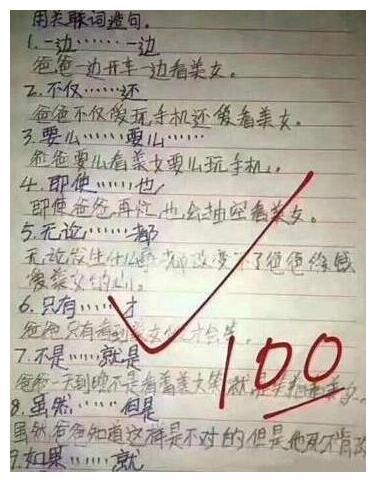 用关联词造句。
1.一边……一边
爸爸一边开车一边看美女。
2.不仅……还
爸爸不仅爱玩手机还爱看美女。
3.要么……要么……
爸爸要么看美女要么玩手机。
4.即使……也
即使爸爸再忙也会抽空看美女。
5.无论……都
无论发生什么事都改变不了爸爸
爱美女的心。
6.只有……才
爸爸只有看到美女他才会笑。
7.不是……就是
爸爸一天到晚不是看着美女笑就是
8.虽然……但是
虽然爸爸知道这样是不对的但是他
9.如果……就
100